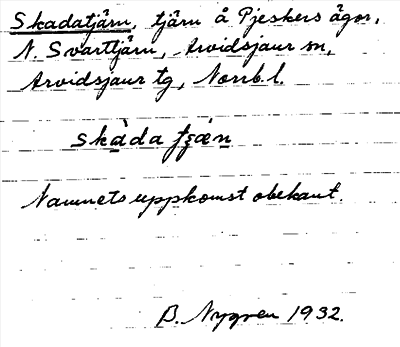 Skadatjärn, tjärn å Pjeskers ägor,
N. Svarttjärn, Arvidsjaur sn,
Arvidsjaur tg, Norrb. l.
skàda ƫʂæ̀n
Namnets uppkomst obekant.
B. Nygren 1932.